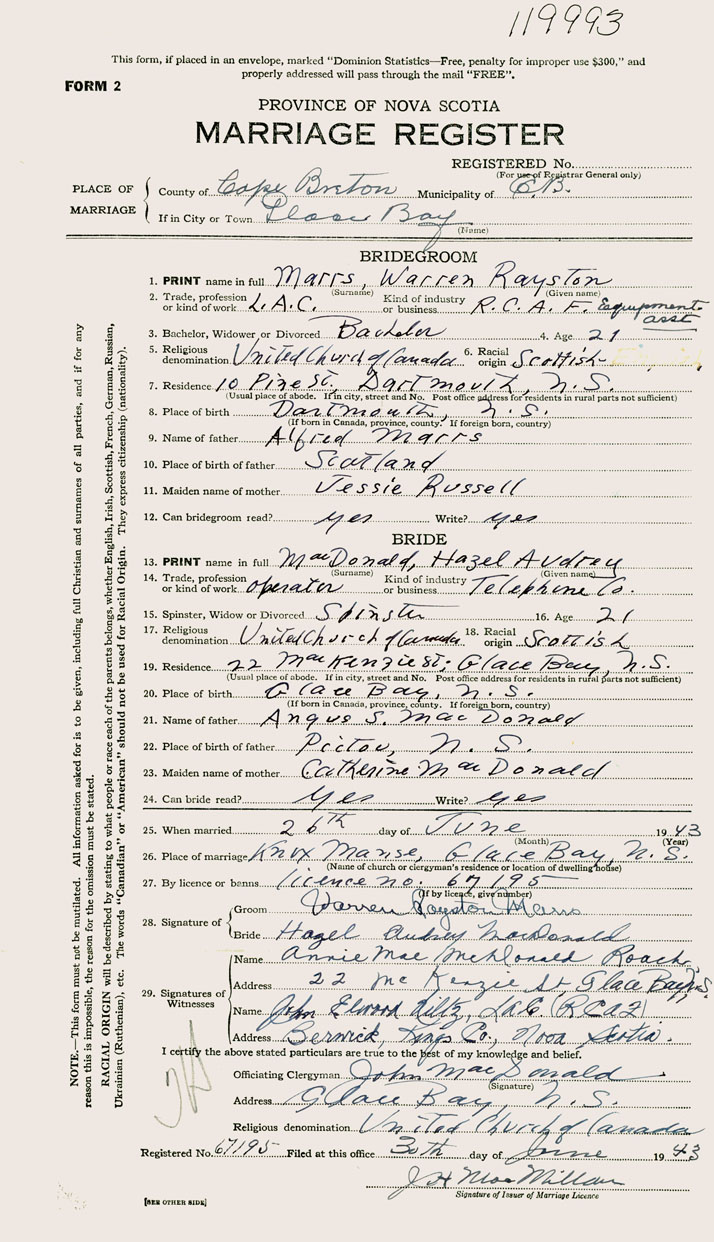 119993
This form, if placed in an envelope, marked "Dominion Statistics—Free, penalty for improper use $300," and
properly addressed will pass through the mail "FREE".
FORM 2
PROVINCE OF NOVA SCOTIA
MARRIAGE REGISTER
REGISTERED No.
(For use of Registrar General only)
PLACE OF MARRIAGE
County of Cape Breton Municipality of C.B.
If in City or Town Glace Bay
(Name)
BRIDEGROOM
1. PRINT name in full Marrs, Warren Rayston
(Surname) (Given name)
2. Trade, profession or kind of work L.A.C. Kind of industry or business R.C.A.F. Equipment asst
3. Bachelor, Widower or Divorced Bachelor 4. Age 21
5. Religious denomination United Church of Canada 6. Racial origin Scottish
7. Residence 10 Pine St., Dartmouth, N.S.
(Usual place of abode. If in city, street and No. Post office address for residents in rural parts not sufficient)
8. Place of birth Dartmouth, N.S.
(If born in Canada, province, county. If foreign born, country)
9. Name of father Alfred Marrs
10. Place of birth of father Scotland
11. Maiden name of mother Jessie Russell
12. Can bridegroom read? yes Write? yes
BRIDE
13. PRINT name in full MacDonald, Hazel Audrey
(Surname) (Given name)
14. Trade, profession or kind of work operator Kind of industry or business Telephone Co.
15. Spinster, Widow or Divorced Spinster 16. Age 21
17. Religious denomination United Church of Canada 18. Racial origin Scottish
19. Residence 22 MacKenzie St; Glace Bay, N.S.
(Usual place of abode. If in city, street and No. Post office address for residents in rural parts not sufficient)
20. Place of birth Glace Bay, N.S.
(If born in Canada, province, county. If foreign born, country)
21. Name of father Angus S. MacDonald
22. Place of birth of father Pictou, N.S.
23. Maiden name of mother Catherine MacDonald
24. Can bride read? Yes Write? yes
25. When married 26th day of June 1943
(Month) (Year)
26. Place of marriage Knox Manse, Glace Bay, N.S.
(Name of church or clergyman's residence or location of dwelling house)
27. By licence or banns licence no. 67195
(If by licence, give number)
28. Signature of
Groom Warren Royston Marrs
Bride Hazel Audrey MacDonald
29. Signatures of Witnesses
Name Annie Mae McDonald Roach
Address 22 McKenzie St Glace Bay, N.S.
Name John Elwood
Address Berwick, Kings Co., Nova Scotia.
I certify the above stated particulars are true to the best of my knowledge and belief.
Officiating Clergyman John MacDonald
(Signature)
Address Glace Bay, N.S.
Religious denomination United Church of Canada
Registered No. 67195 Filed at this office 30th day of June 1943
J H MacMillan
Signature of Issuer of Marriage Licence
[SEE OTHER SIDE]
NOTE.—This form must not be mutilated. All information asked for is to be given, including full Christian and surnames of all parties, and if for any
reason this is impossible, the reason for the omission must be stated.
RACIAL ORIGIN will be described by stating to what people or race each of the parents belongs, whether English, Irish, Scottish, French, German, Russian,
Ukrainian (Ruthenian), etc. The words "Canadian" or "American" should not be used for Racial Origin. They express citizenship (nationality).